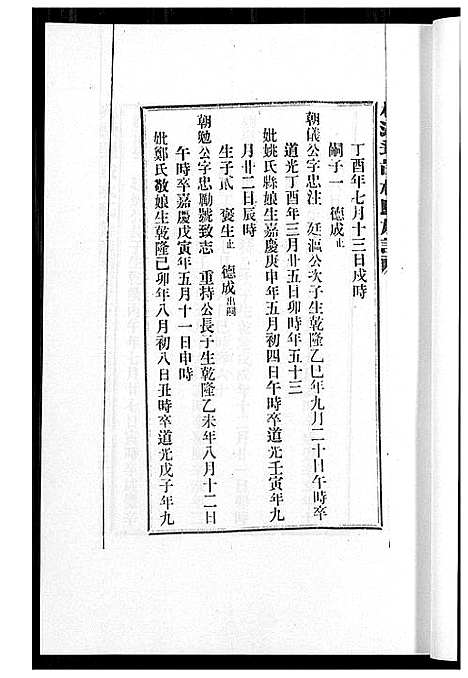 丁酉年七月十三日戌時
嗣子一 德成止
朝儀公字忠注 廷瀛公次子生乾隆乙巳年九月二十日午時卒
道光丁酉年三月廿五日卯時年五十三
妣姚氏縣娘生嘉慶庚申年五月初四日午時卒道光壬寅年九
月廿二日辰時
生子貳 褒生止 德成出嗣
朝勉公字忠勵號致志 重持公長子生乾隆乙未年八月十二日
午時卒嘉慶戊寅年五月十一日申時
妣鄭氏敬娘生乾隆己卯年八月初八日丑時卒道光戊子年九